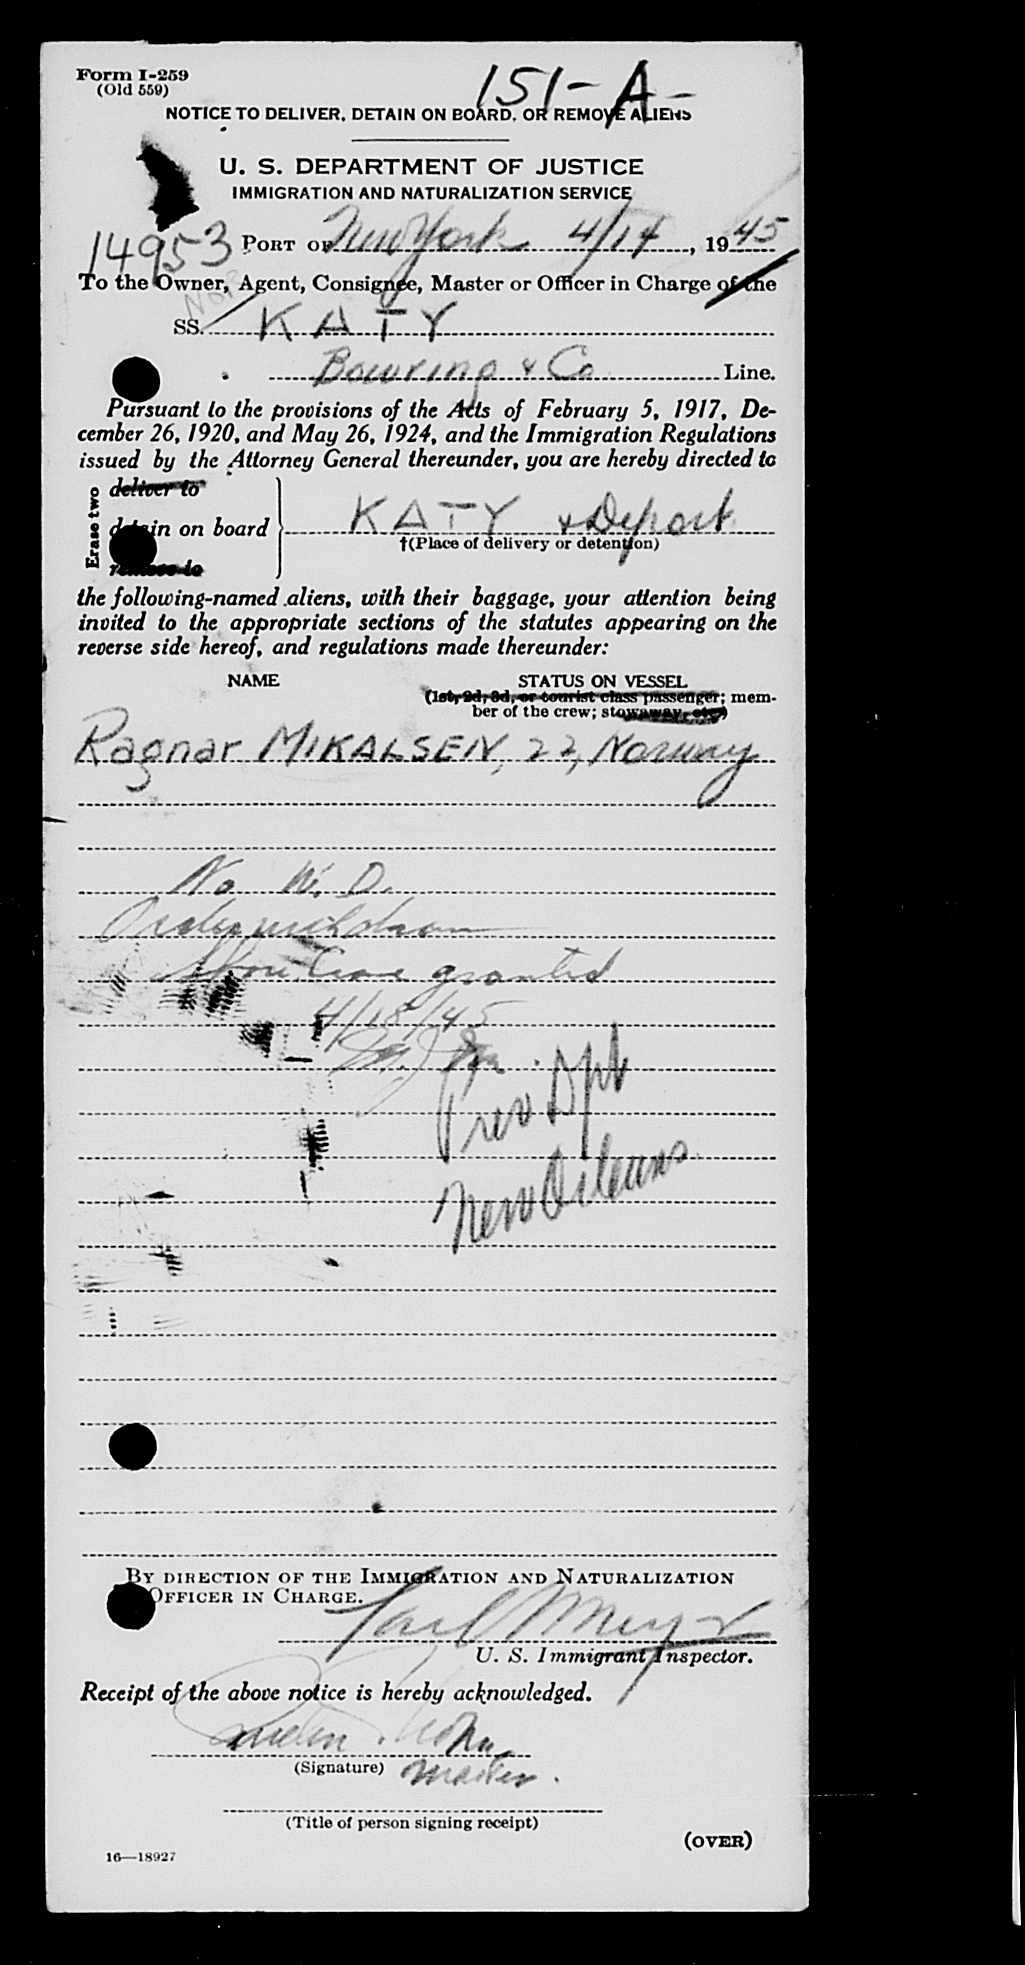 Form I-259
(Old 559)
151-A-
NOTICE TO DELIVER, DETAIN ON BOARD, OR REMOVE ALIENS
U. S. DEPARTMENT OF JUSTICE
IMMIGRATION AND NATURALIZATION SERVICE
14953
PORT OF New York 4/14, 1945
To the Owner, Agent, Consignee, Master or Officer in Charge of the
Nor
SS. KATY
Bowring & Co Line.
Pursuant to the provisions of the Acts of February 5, 1917, De-
cember 26, 1920, and May 26, 1924, and the Immigration Regulations
issued by the Attorney General thereunder, you are hereby directed to
Erase two
deliver to
detain on board
remove to
KATY & Deport
†(Place of delivery or detention)
the following-named aliens, with their baggage, your attention being
invited to the appropriate sections of the statutes appearing on the
reverse side hereof, and regulations made thereunder:
NAME STATUS ON VESSEL
(1st, 2d, 3d, or tourist class passenger; mem-
ber of the crew; stowaway, etc.)
Ragnar MIKALSEN, 22, Norway
No W. D.
Order withdrawn
Shore leave granted
4/18/45
Prev Dpt
New Orleans
BY DIRECTION OF THE IMMIGRATION AND NATURALIZATION
OFFICER IN CHARGE.
Carl Meyer
U. S. Immigrant Inspector.
Receipt of the above notice is hereby acknowledged.
(Signature) Master.
(Title of person signing receipt)
(OVER)
16—18927